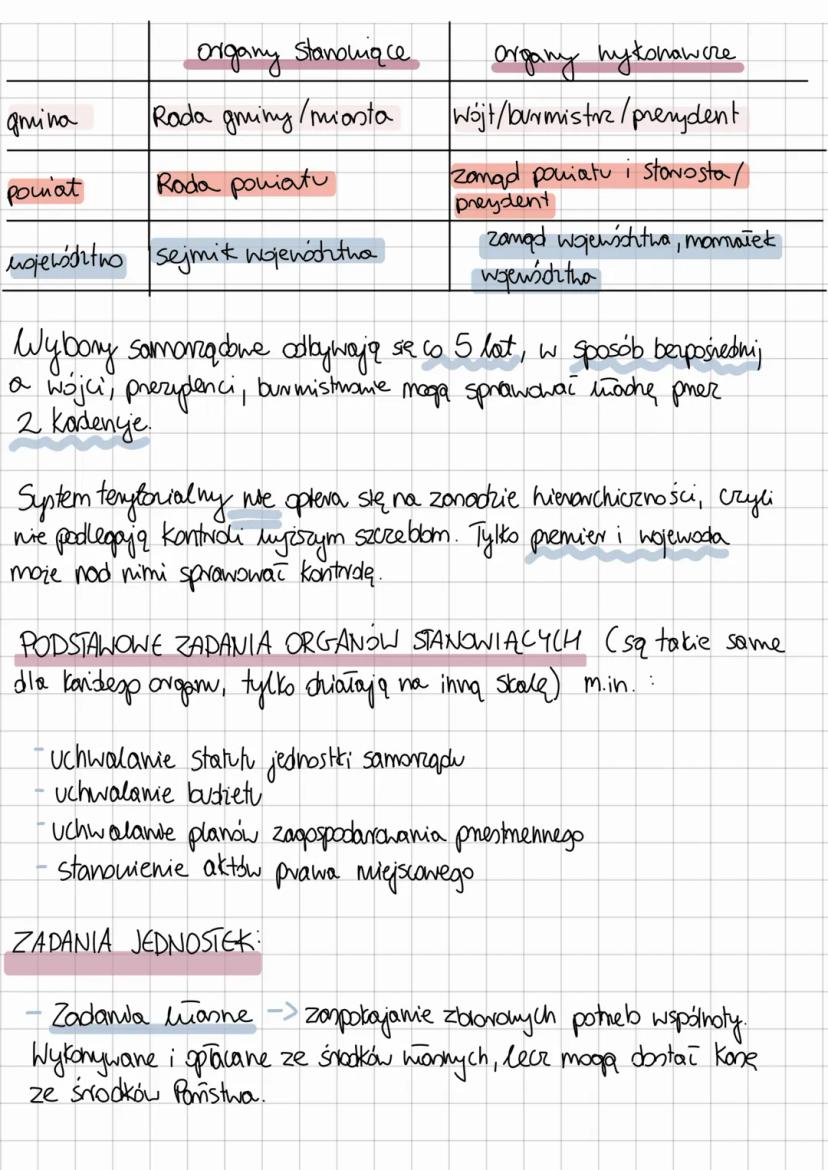 organy stanowiące organy wykonawcze
gmina Rada gminy/miasta wójt/burmistrz/prezydent
powiat Rada powiatu zarząd powiatu i starosta/
prezydent
województwo sejmik województwa zarząd województwa, marszałek
województwa
Wybory samorządowe odbywają się co 5 lat, w sposób bezpośredni,
a wójci, prezydenci, burmistrzowie mogą sprawować władzę przez
2 kadencje.
System terytorialny nie opiera się na zasadzie hierarchiczności, czyli
nie podlegają kontroli wyższym szczeblom. Tylko premier i wojewoda
może nad nimi sprawować kontrolę.
PODSTAWOWE ZADANIA ORGANÓW STANOWIĄCYCH (są takie same
dla każdego organu, tylko działają na inną skalę) m.in. :
- uchwalanie statutu jednostki samorządu
- uchwalanie budżetu
- uchwalanie planów zagospodarowania przestrzennego
- stanowienie aktów prawa miejscowego
ZADANIA JEDNOSTEK:
- Zadania własne -> zaspokajanie zbiorowych potrzeb wspólnoty.
Wykonywane i opłacane ze środków własnych, lecz mogą dostać kasę
ze środków Państwa.